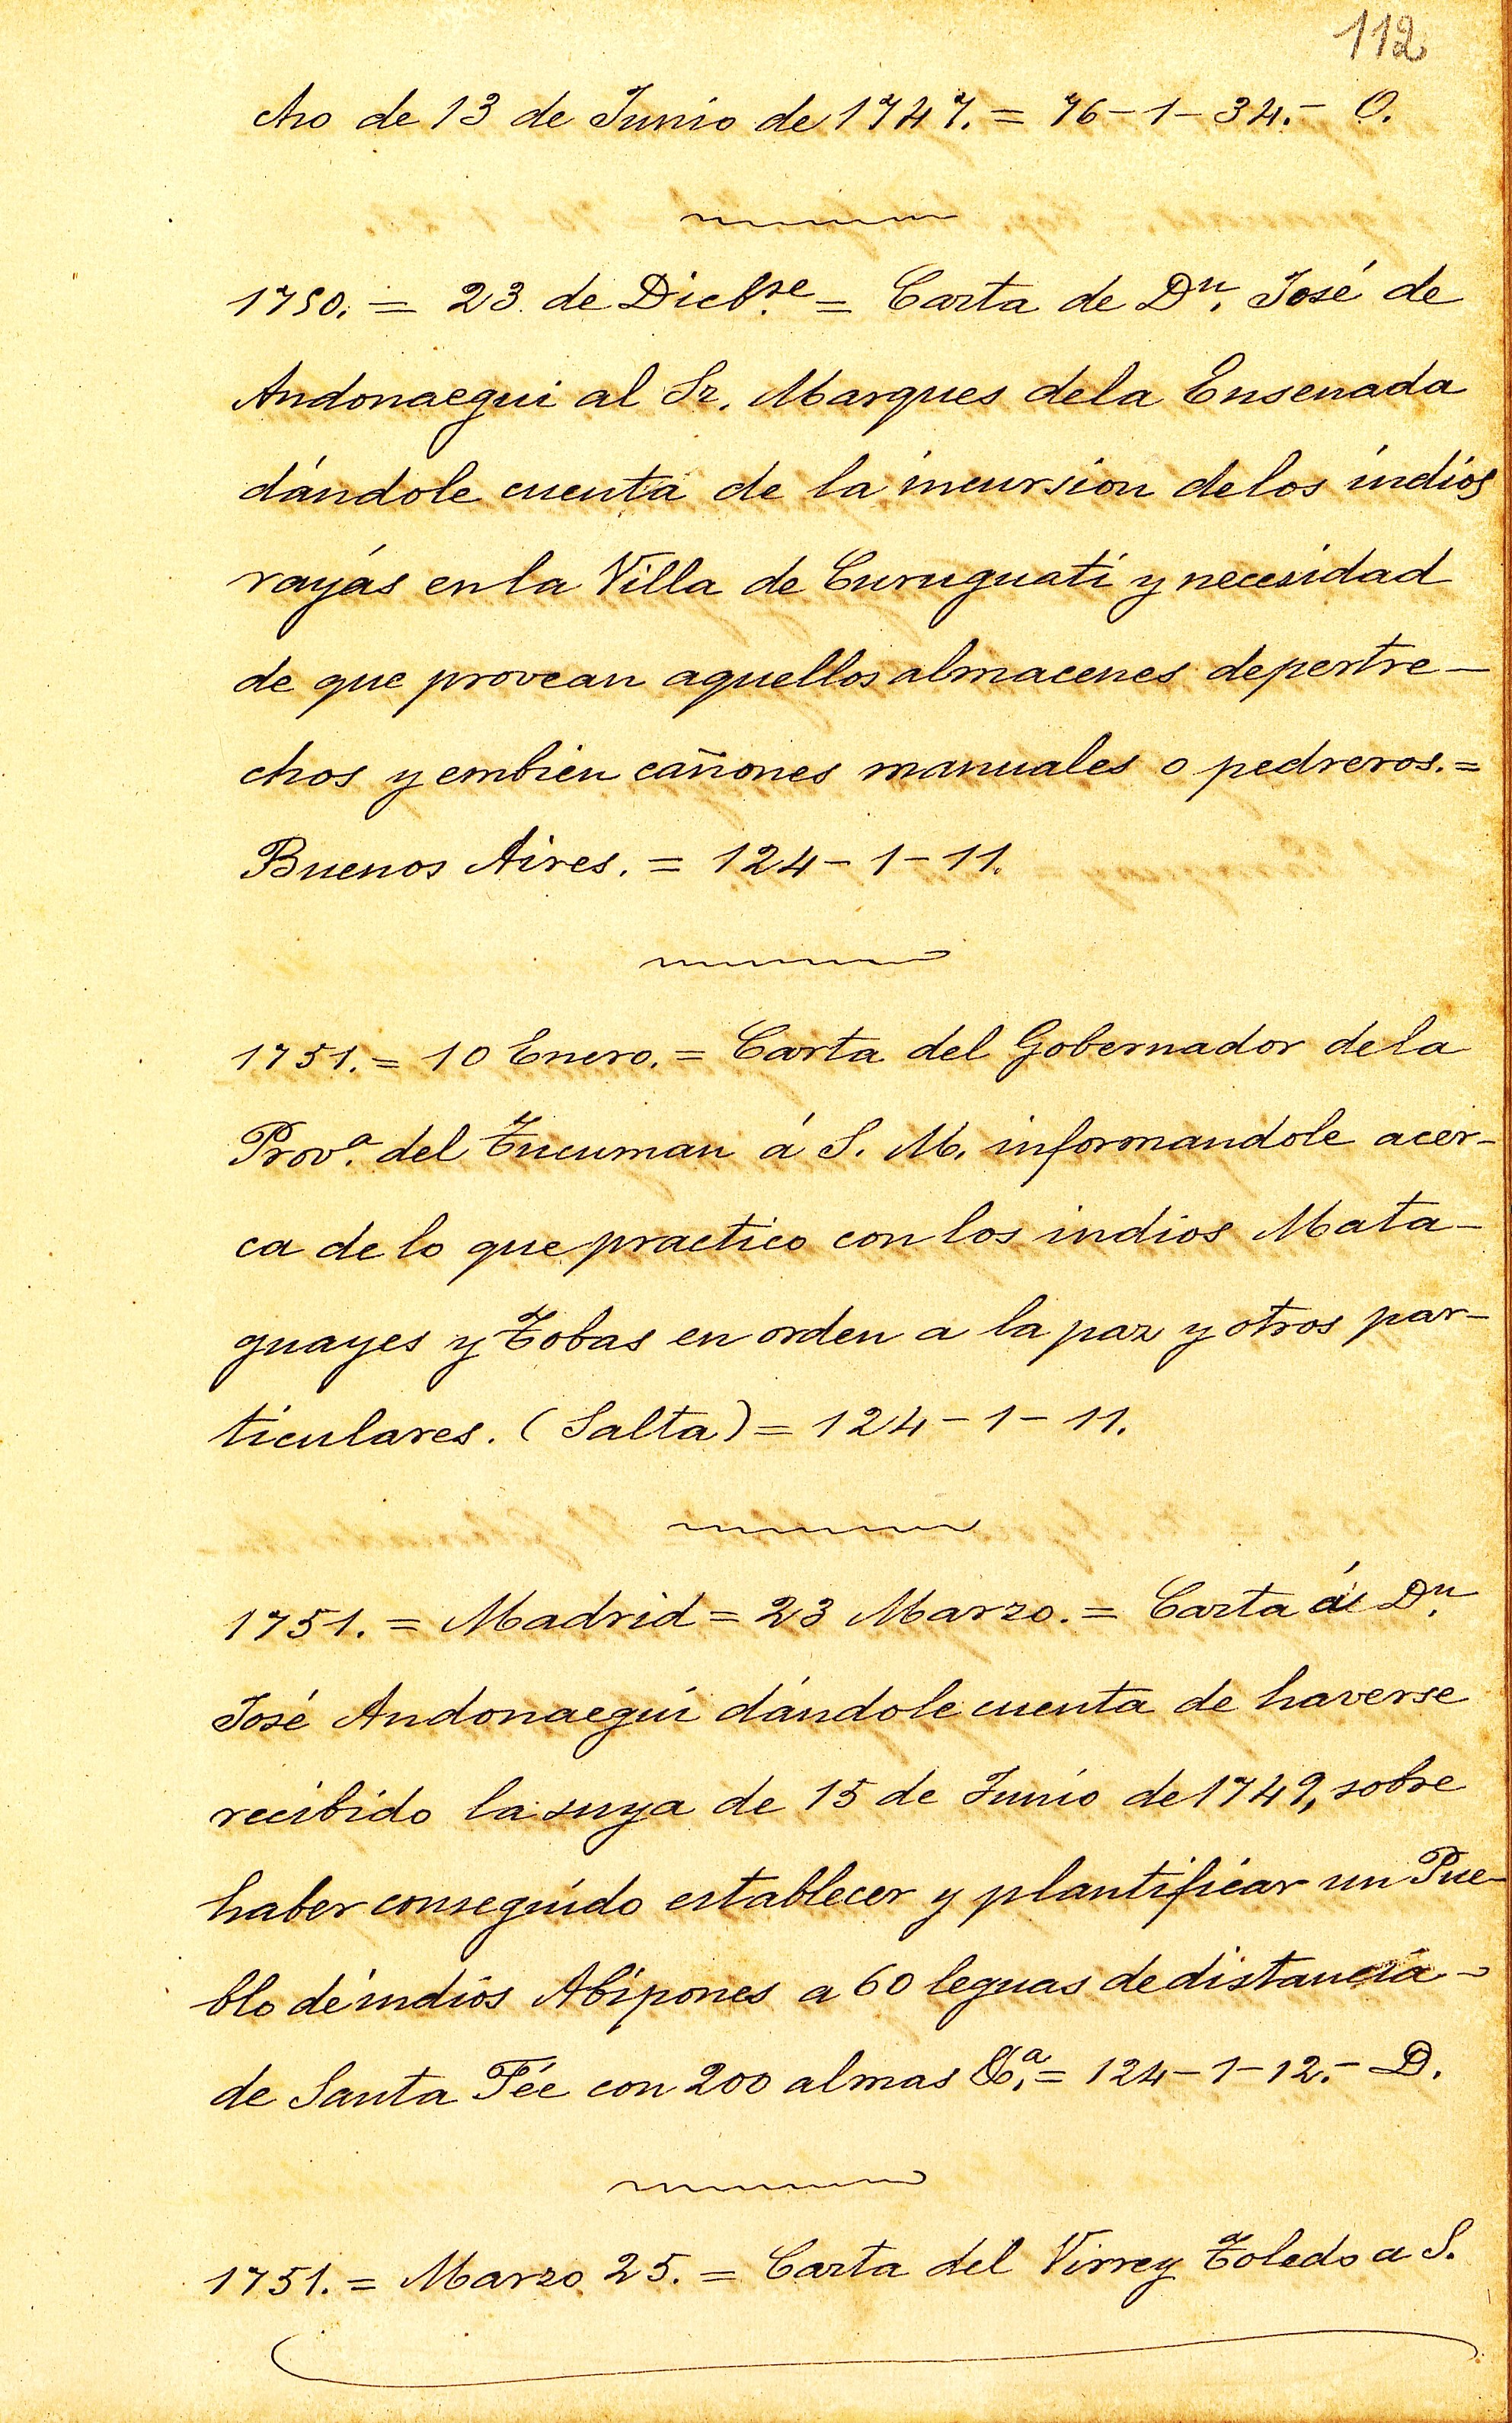 112
cho de 13 de Junio de 1747. = 76-1-34.- O.
1750. = 23 de Dicbre. = Carta de Dn. José de
Andonaegui al Sr. Marques dela Ensenada
dándole cuenta de la incursion delos indios
rayás en la Villa de Curuguati y necesidad
de que provean aquellos almacenes de pertre-
chos y embien cañones manuales o pedreros. =
Buenos Aires. = 124-1-11.
1751. = 10 Enero. = Carta del Gobernador dela
Prova. del Tucuman á S. M. informandole acer-
ca de lo que practico con los indios Mata-
guayes y Tobas en orden a la paz y otros par-
ticulares. (Salta) = 124-1-11.
1751. = Madrid = 23 Marzo. = Carta á Dn.
José Andonaegui dándole cuenta de haverse
recibido la suya de 15 de Junio de 1749, sobre
haber conseguido establecer y plantificar un Pue-
blo de indios Abipones a 60 leguas de distancia-
de Santa Fée con 200 almas &a. = 124-1-12.- D.
1751. = Marzo 25. = Carta del Virrey Toledo a S.